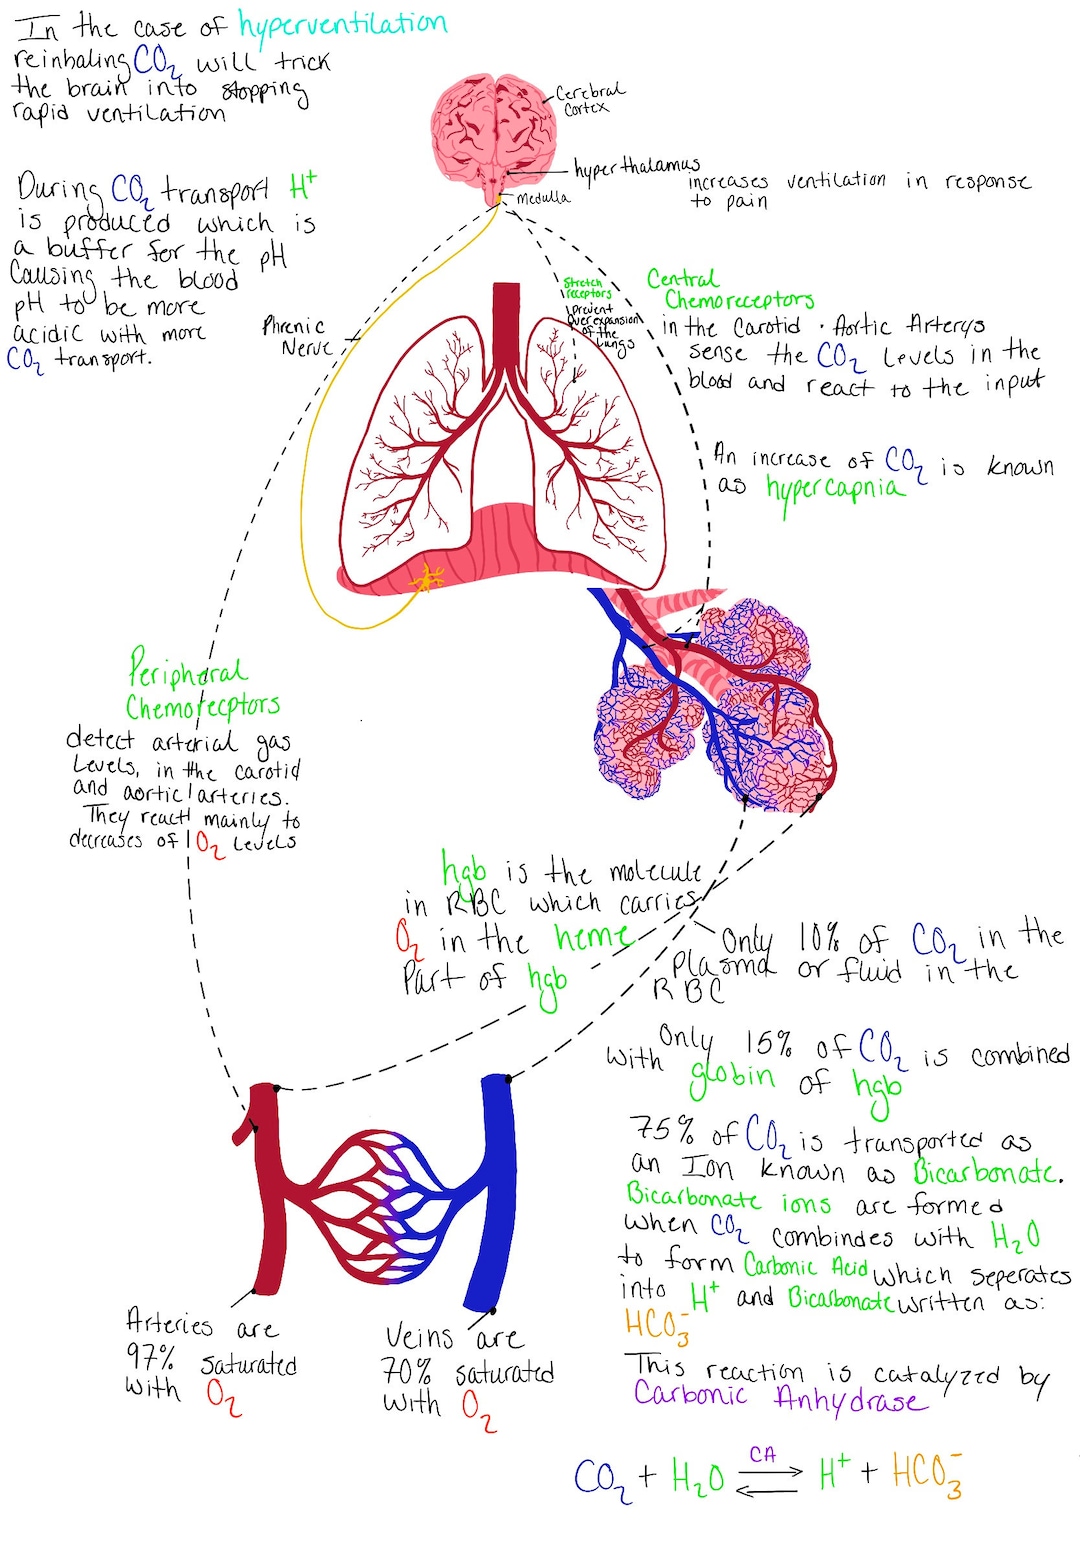 In the case of hyperventilation
reinhaling CO2 will trick
the brain into stopping
rapid ventilation
Cerebral
Cortex
hyperthalamus
increases ventilation in response
to pain
Medulla
During CO2 transport H+
is produced which is
a buffer for the pH
Causing the blood
pH to be more
acidic with more
CO2 transport.
Phrenic
Nerve
Stretch
receptors
prevent
overexpansion
of the
Lungs
Central
Chemoreceptors
in the Carotid · Aortic Arterys
sense the CO2 Levels in the
blood and react to the input
An increase of CO2 is known
as hypercapnia
Peripheral
Chemorecptors
detect arterial gas
Levels, in the carotid
and aortic arteries.
They react mainly to
decreases of O2 Levels
hgb is the molecule
in RBC which carries
O2 in the heme
Part of hgb
Only 10% of CO2 in the
plasma or fluid in the
RBC
Only 15% of CO2 is combined
with globin of hgb
75% of CO2 is transported as
an Ion known as Bicarbonate.
Bicarbonate ions are formed
when CO2 combindes with H2O
to form Carbonic Acid which seperates
into H+ and Bicarbonate written as:
HCO3-
This reaction is catalyzed by
Carbonic Anhydrase
Arteries are
97% saturated
with O2
Veins are
70% saturated
with O2
CA
CO2 + H2O ⇌ H+ + HCO3-